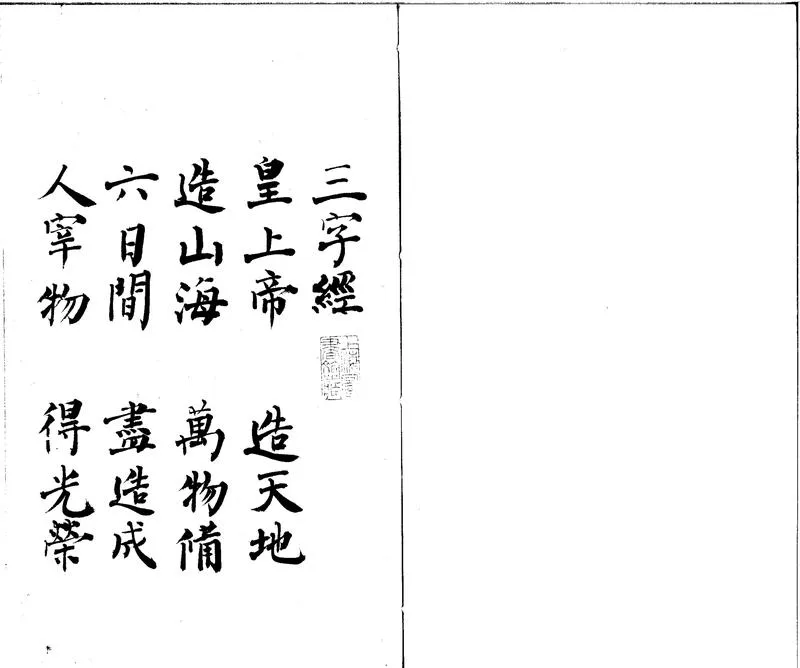 三字經
皇上帝 造天地
造山海 萬物備
六日間 盡造成
人宰物 得光榮